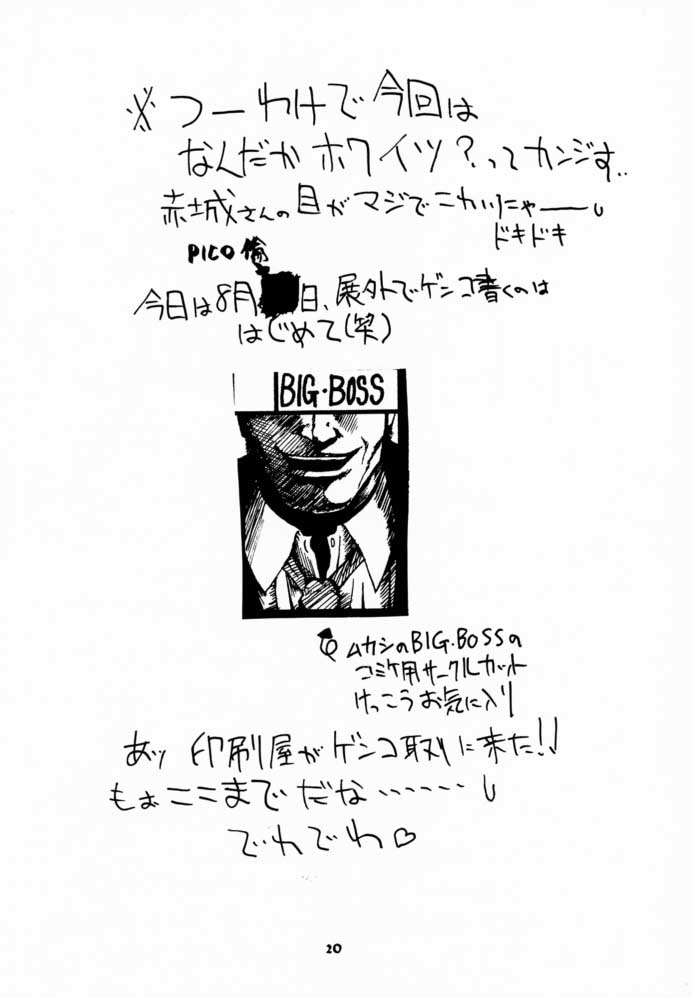 ※つーわけで今回は
なんだかホワイツ？ってカンジす..
赤城さんの目がマジでこわいにゃーー
ドキドキ
PICO倫
今日は8月 日、屋外でゲンコ書くのは
はじめて(笑)
BIG・BOSS
ムカシのBIG・BOSSの
コミケ用サークルカット
けっこうお気に入り
あッ 印刷屋がゲンコ取りに来た!!
もぉここまでだな……
でわでわ♡
20